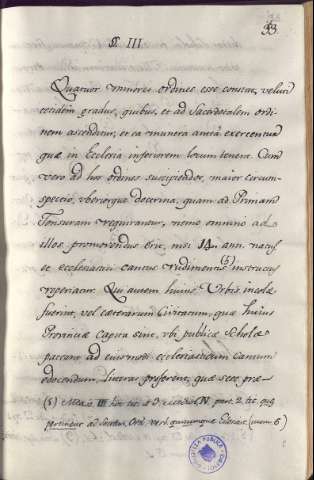 33
§. III
Quatuor minores ordines esse constat, veluti
totidem gradus, quibus, et ad Sacerdotalem ordi-
nem ascenditur, et ea munera exercentur
quæ in Ecclesia inferiorem locum tenent. Cum
vero ad hos ordines suscipiendos, maior circum-
spectio, uberiorque doctrina, quam ad Primam
Tonsuram requirantur, nemo omnino ad
illos promovendus erit, nisi 14. ann. natus
et ecclesiastici cantus rudimentis (5) instructus
reperiatur. Qui autem huius Urbis incolæ
fuerint, vel cæterarum Civitatum, quæ huius
Provinciæ Capita sint, ubi publicæ Scholæ
pateant ad eiusmodi ecclesiasticum Cantum
edocendum, litteras præferent, quæ se se præ
(5) III part. 2. tit.
pertinent ad Ord. verb. (num. 6)
BIBLIOTECA PUBLICA